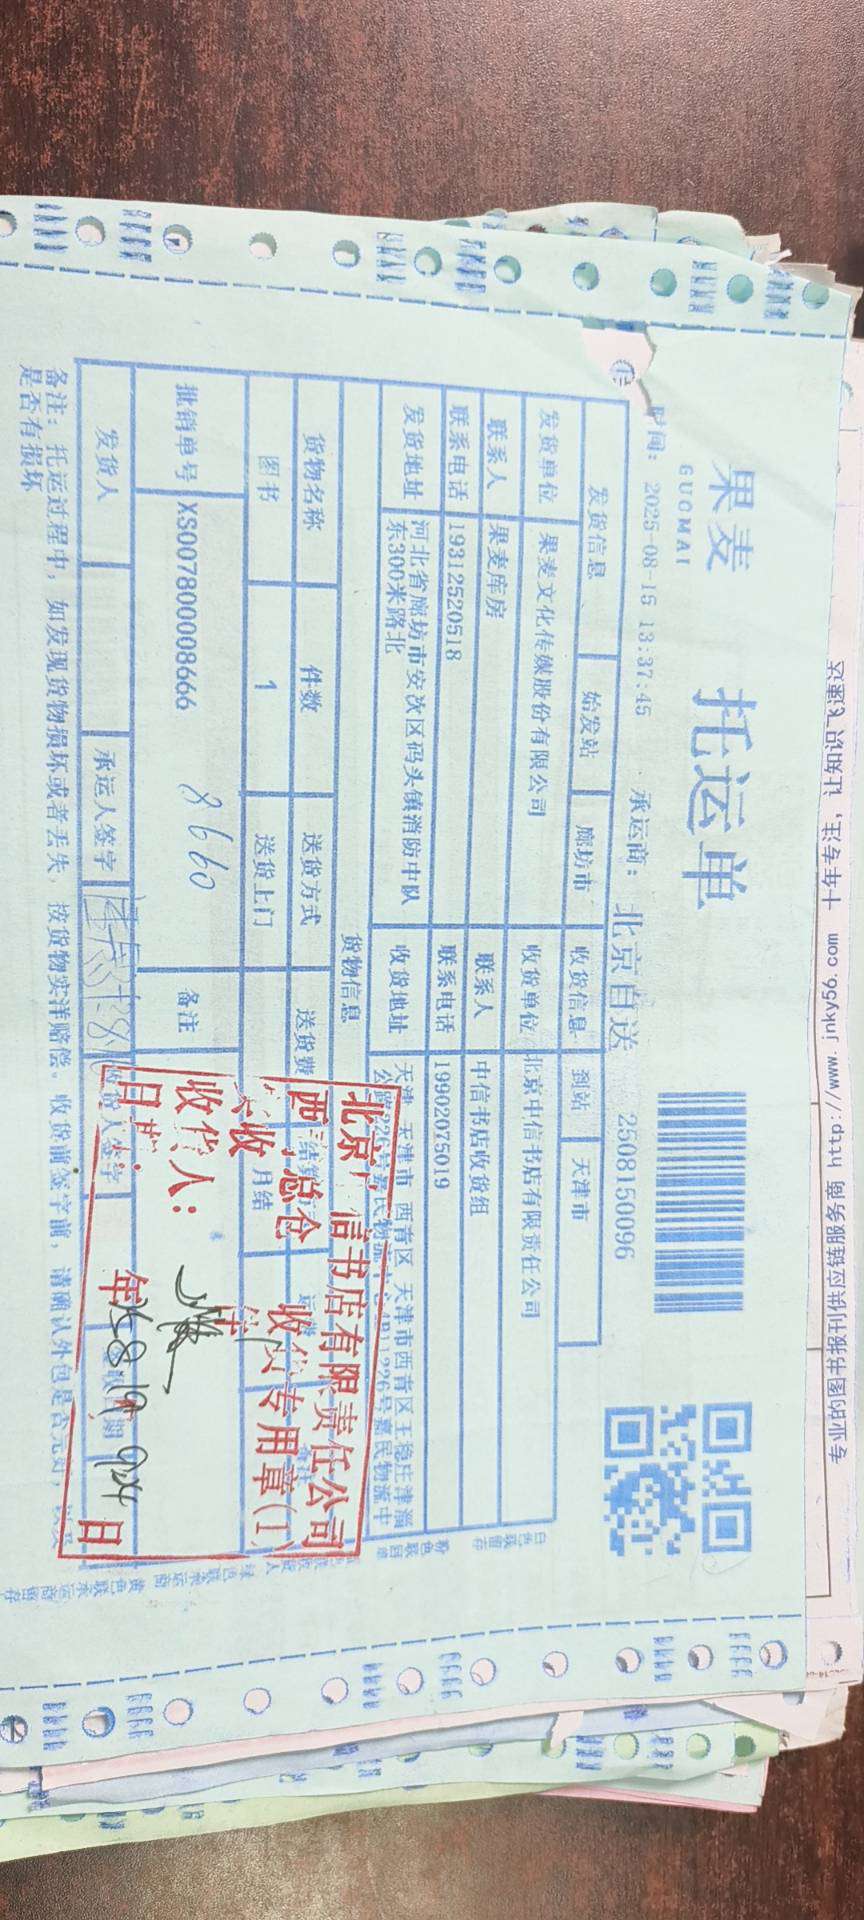 果麦
GUOMAI
托运单
2508150096
时间: 2025-08-15 13:37:45 承运商: 北京自送
发货信息 始发站 廊坊市 收货信息 到站 天津市
发货单位 果麦文化传媒股份有限公司 收货单位 北京中信书店有限责任公司
联系人 果麦库房 联系人 中信书店收货组
联系电话 19312520518 联系电话 19902075019
发货地址 河北省廊坊市安次区码头镇消防中队东300米路北 收货地址 天津 天津市 西青区 天津市西青区王稳庄津淄
货物信息
货物名称 件数 送货方式 送货费
图书 1 送货上门 月结
批销单号 XS007800008666 备注
8660
发货人 承运人签字 收货人签字
备注: 托运过程中, 如发现货物损坏或者丢失, 按货物实洋赔偿。收货前签字前, 请确认外包是否完好,
是否有损坏
信书店有限责任公司
总仓 收货专用章(1)
收货人:
年 日
专业的图书报刊供应链服务商 http://www.jnky56.com 十年专注, 让知识飞速达